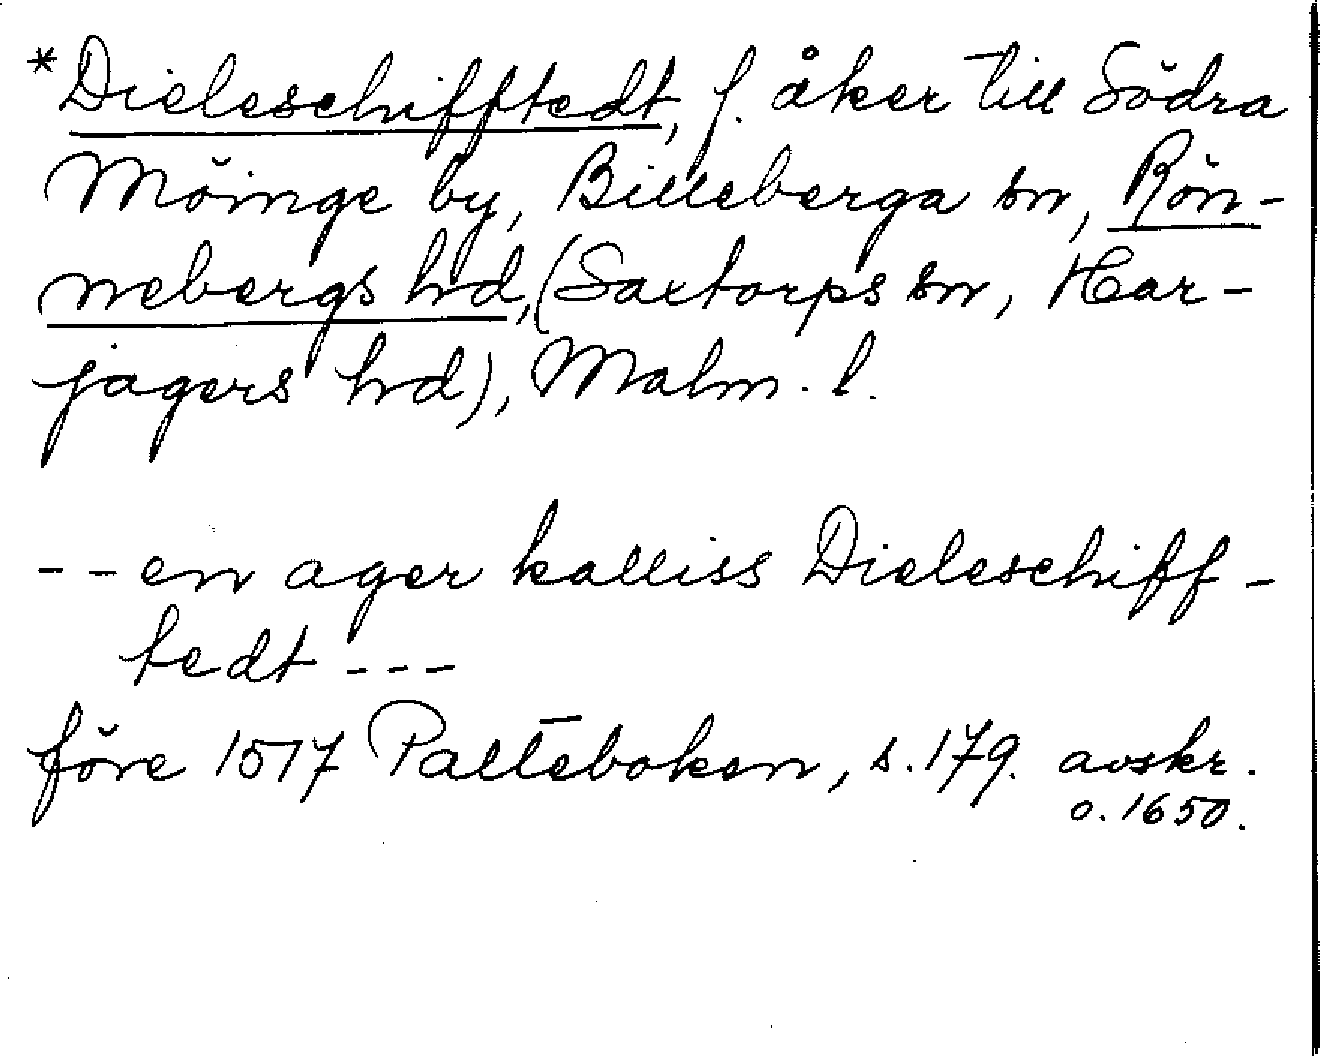 *Dieleschifftedt, f. åker till Södra
Möinge by, Billeberga sn, Rön-
nebergs hrd, (Saxtorps sn, Har-
jagers hrd), Malm. l.
-- en ager kalliss Dieleschiff-
tedt ---
före 1517 Palteboken, s. 179. avskr.
o. 1650.